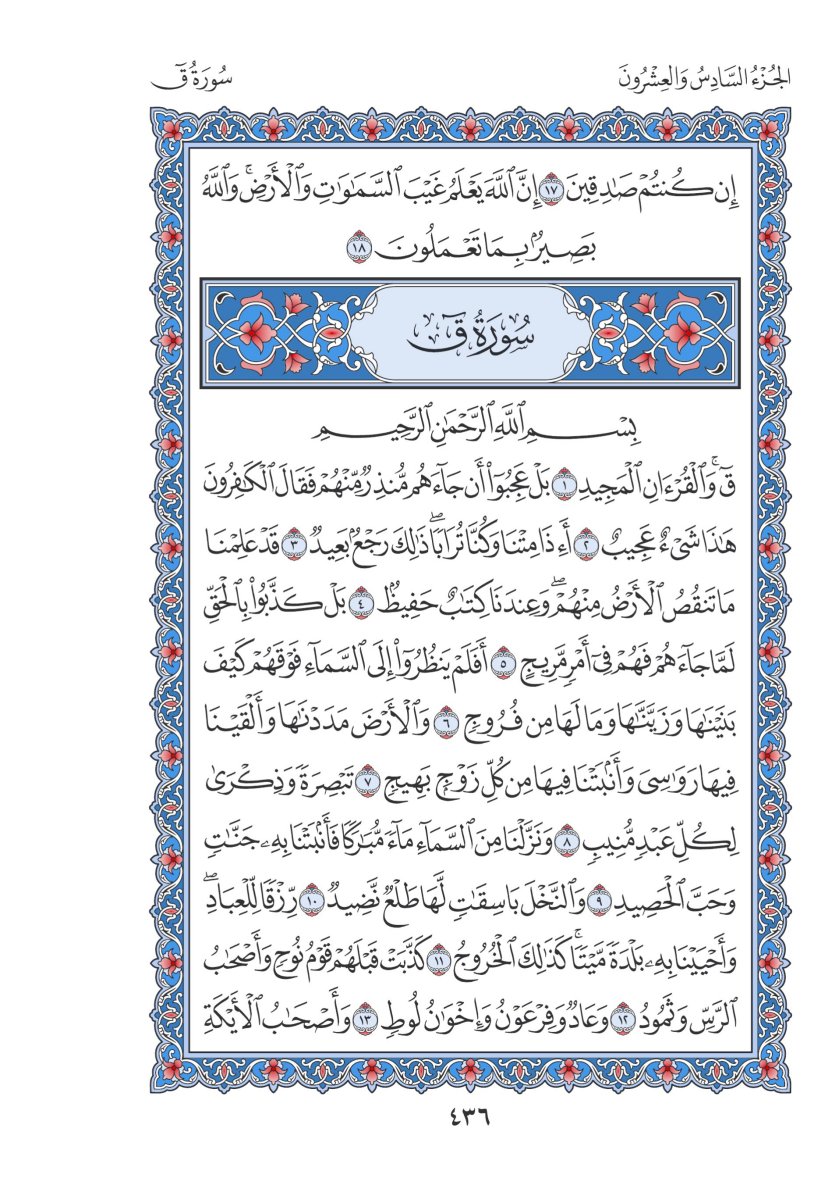 الجُزْءُ السَّادِسُ وَالعِشْرُونَ
سُورَةُ قٓ
إِن كُنتُمْ صَادِقِينَ ١٧ إِنَّ اللَّهَ يَعْلَمُ غَيْبَ السَّمَاوَاتِ وَالْأَرْضِۚ وَاللَّهُ
بَصِيرُۢ بِمَا تَعْمَلُونَ ١٨
سُورَةُ قٓ
بِسْمِ اللَّهِ الرَّحْمَٰنِ الرَّحِيمِ
قٓۚ وَالْقُرْءَانِ الْمَجِيدِ ١ بَلْ عَجِبُوٓاْ أَن جَآءَهُم مُّنذِرٌ مِّنْهُمْ فَقَالَ الْكَٰفِرُونَ
هَٰذَا شَيْءٌ عَجِيبٌ ٢ أَءِذَا مِتْنَا وَكُنَّا تُرَابًاۖ ذَٰلِكَ رَجْعُۢ بَعِيدٌ ٣ قَدْ عَلِمْنَا
مَا تَنقُصُ الْأَرْضُ مِنْهُمْۖ وَعِندَنَا كِتَٰبٌ حَفِيظُۢ ٤ بَلْ كَذَّبُواْ بِالْحَقِّ
لَمَّا جَآءَهُمْ فَهُمْ فِيٓ أَمْرٍ مَّرِيجٍ ٥ أَفَلَمْ يَنظُرُوٓاْ إِلَى السَّمَآءِ فَوْقَهُمْ كَيْفَ
بَنَيْنَٰهَا وَزَيَّنَّٰهَا وَمَا لَهَا مِن فُرُوجٍ ٦ وَالْأَرْضَ مَدَدْنَٰهَا وَأَلْقَيْنَا
فِيهَا رَوَٰسِىَ وَأَنۢبَتْنَا فِيهَا مِن كُلِّ زَوْجٍۭ بَهِيجٍ ٧ تَبْصِرَةً وَذِكْرَىٰ
لِكُلِّ عَبْدٍ مُّنِيبٍ ٨ وَنَزَّلْنَا مِنَ السَّمَآءِ مَآءً مُّبَٰرَكًا فَأَنۢبَتْنَا بِهِۦ جَنَّٰتٍ
وَحَبَّ الْحَصِيدِ ٩ وَالنَّخْلَ بَاسِقَٰتٍ لَّهَا طَلْعٌ نَّضِيدٌ ١٠ رِّزْقًا لِّلْعِبَادِۖ
وَأَحْيَيْنَا بِهِۦ بَلْدَةً مَّيْتًاۚ كَذَٰلِكَ الْخُرُوجُ ١١ كَذَّبَتْ قَبْلَهُمْ قَوْمُ نُوحٍ وَأَصْحَٰبُ
الرَّسِّ وَثَمُودُ ١٢ وَعَادٌ وَفِرْعَوْنُ وَإِخْوَٰنُ لُوطٍ ١٣ وَأَصْحَٰبُ الْأَيْكَةِ
٤٣٦